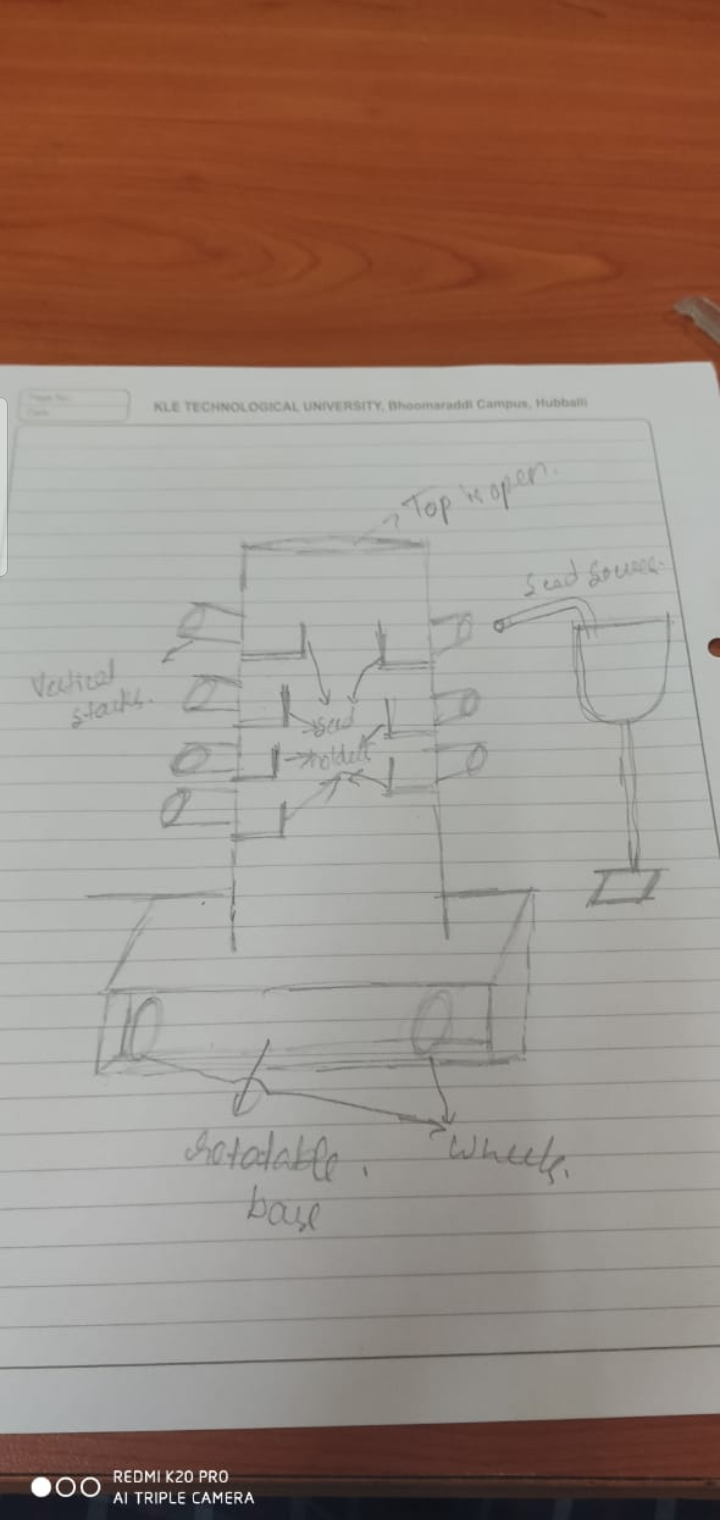 Page No.
Date
KLE TECHNOLOGICAL UNIVERSITY, Bhoomaraddi Campus, Hubballi
Top is open.
Seed Source
Vertical
stacks.
seed
holder
rotatable.
base
wheels.
REDMI K20 PRO
AI TRIPLE CAMERA